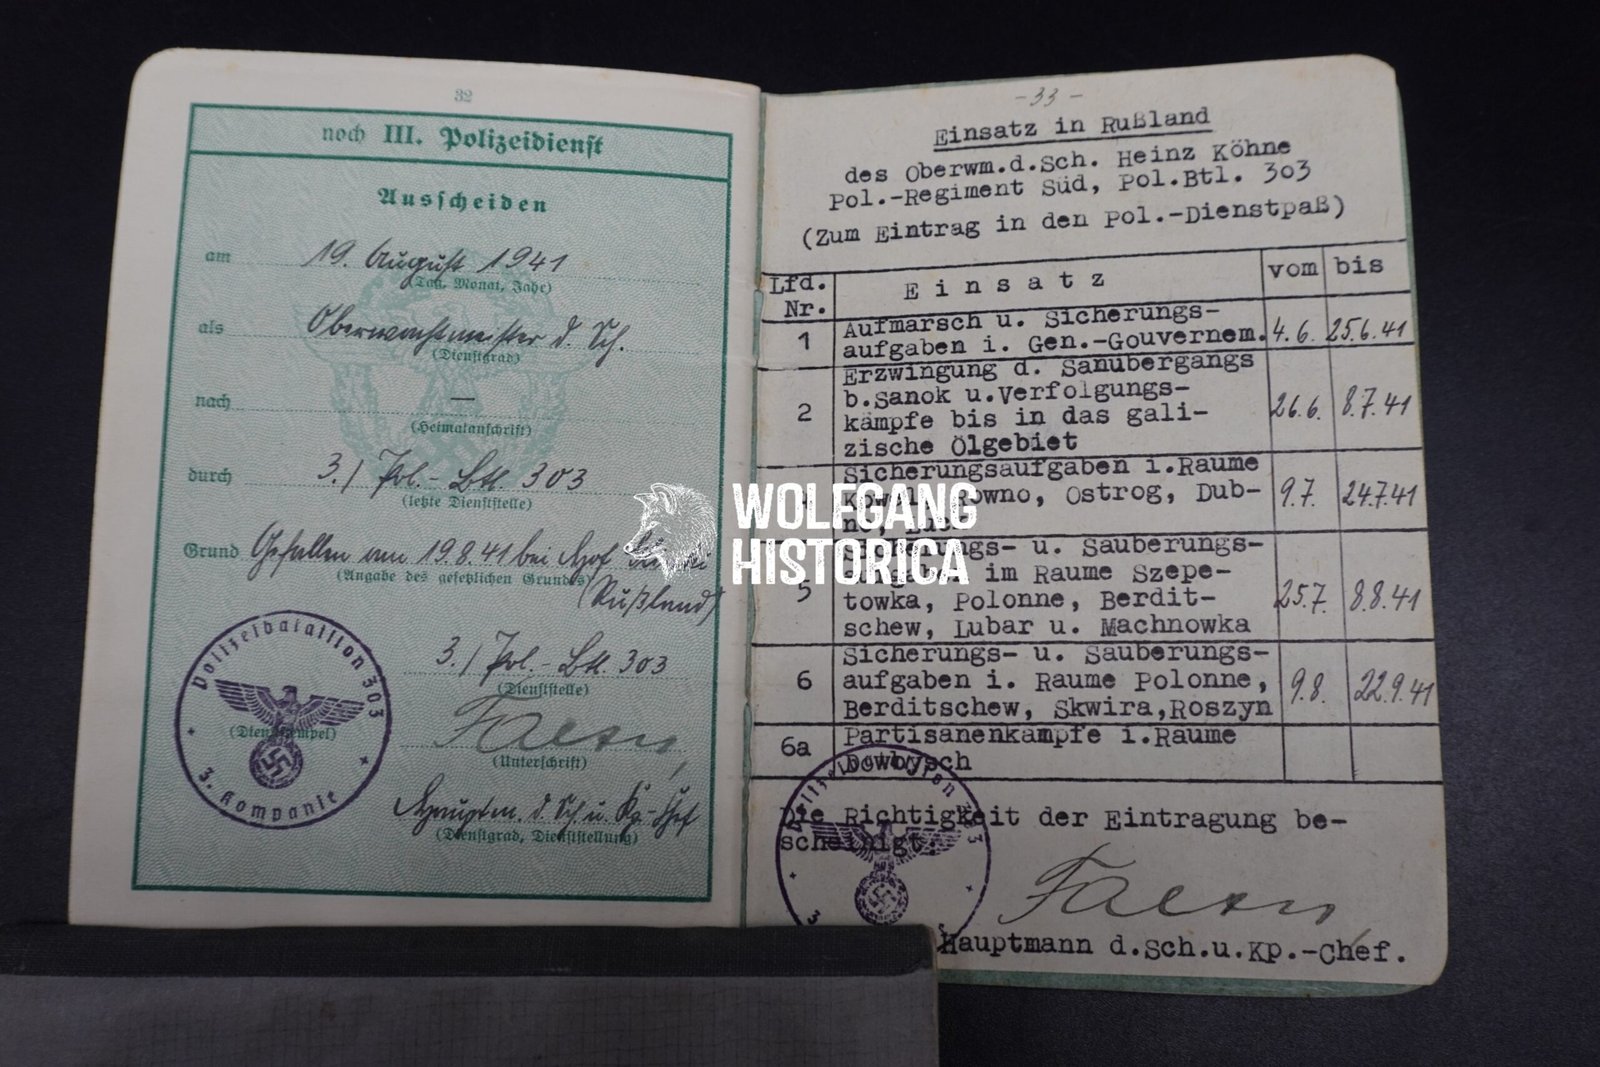 32
noch III. Polizeidienst
Ausscheiden
am 19. August 1941
(Tag, Monat, Jahr)
als Oberwachtmeister d. Sch.
(Dienstgrad)
nach —
(Heimatanschrift)
durch 3./Pol.-Btl. 303
(letzte Dienststelle)
Grund Gefallen am 19.8.41 bei
(Angabe des gesetzlichen Grundes)
(Rußland)
3./Pol.-Btl. 303
(Dienststelle)
(Dienststempel)
(Unterschrift)
Hauptm. d. Sch. u. Kp.-Chef
(Dienstgrad, Dienststellung)
Polizeibataillon 303
3. Kompanie
-33-
Einsatz in Rußland
des Oberwm.d.Sch. Heinz Köhne
Pol.-Regiment Süd, Pol.Btl. 303
(Zum Eintrag in den Pol.-Dienstpaß)
Lfd. Nr. Einsatz vom bis
1 Aufmarsch u. Sicherungs-
aufgaben i. Gen.-Gouvernem. 4.6. 25.6.41
Erzwingung d. Sanübergangs
2 b.Sanok u.Verfolgungs- 26.6. 8.7.41
kämpfe bis in das gali-
zische Ölgebiet
Sicherungsaufgaben i.Raume
Kowel, Rowno, Ostrog, Dub- 9.7. 24.7.41
Sicherungs- u. Säuberungs-
im Raume Szepe-
5 towka, Polonne, Berdit- 25.7. 8.8.41
schew, Lubar u. Machnowka
Sicherungs- u. Säuberungs-
6 aufgaben i. Raume Polonne, 9.8. 22.9.41
Berditschew, Skwira,Roszyn
6a Partisanenkämpfe i.Raume
Dowbysch
Die Richtigkeit der Eintragung be-
scheinigt:
Hauptmann d.Sch.u.Kp.-Chef.
WOLFGANG
HISTORICA